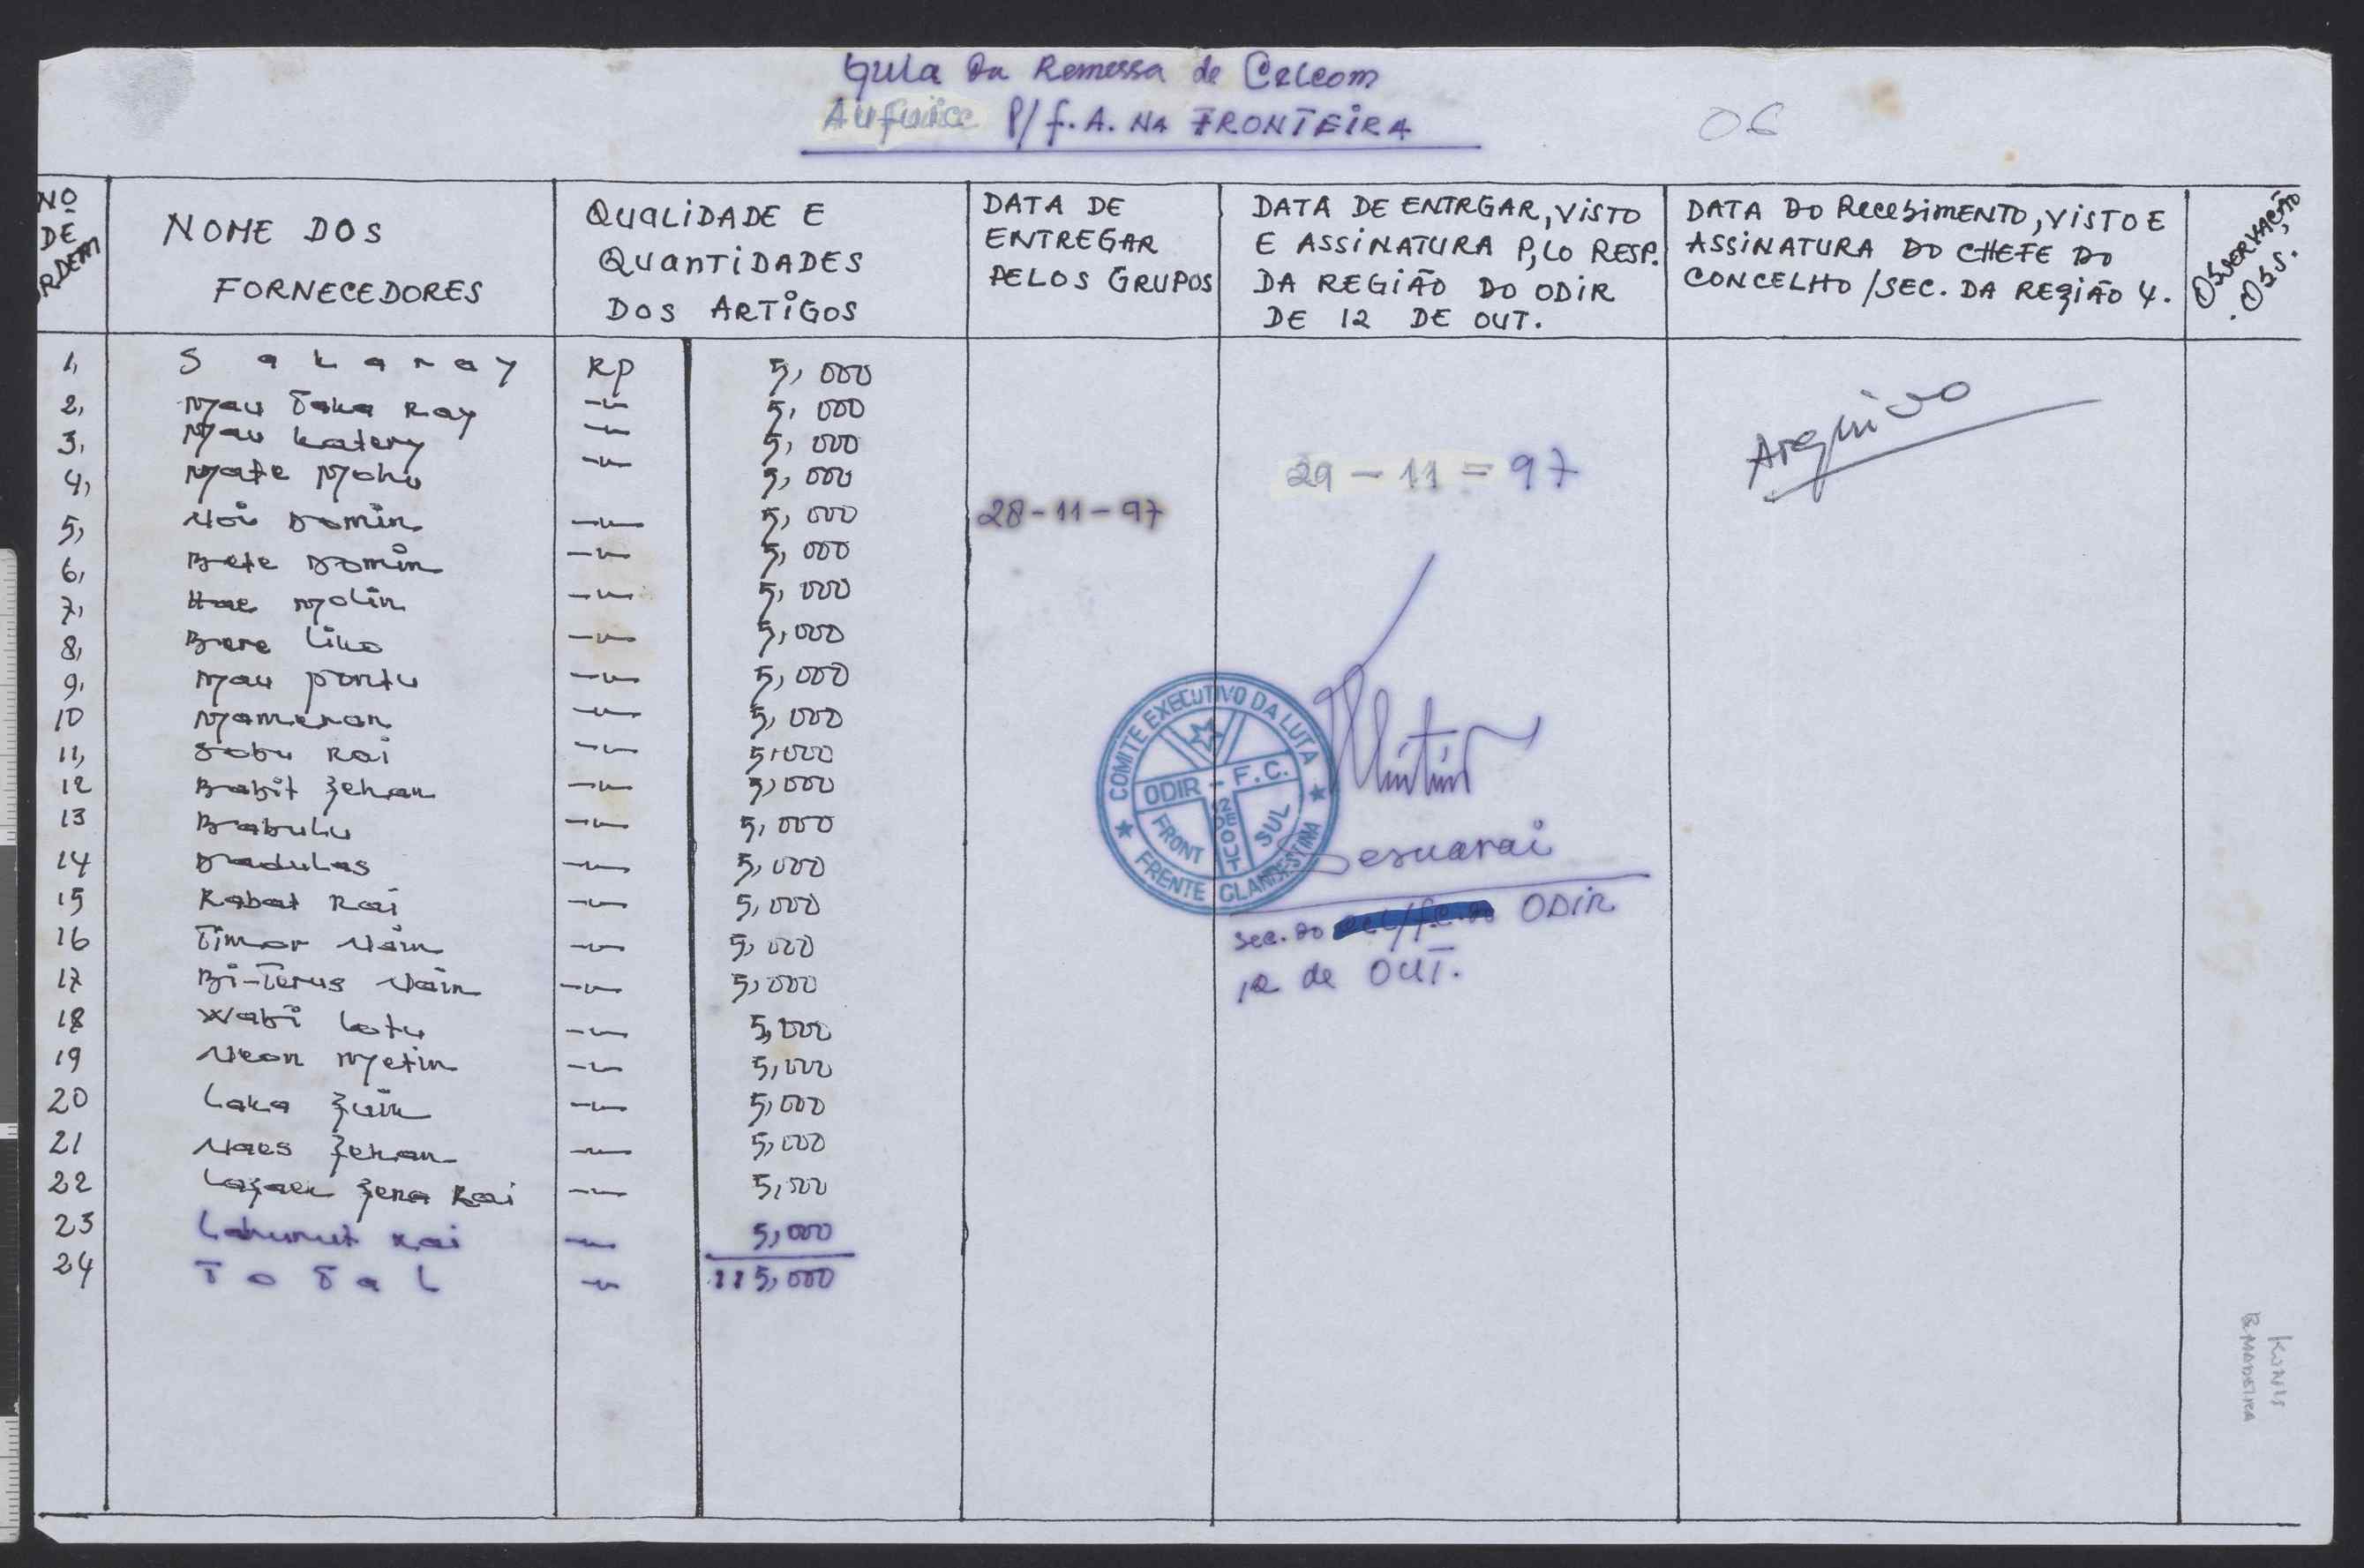 Guia da Remessa de Celcom
P/ F.A. NA FRONTEIRA
06
NO DE ORDEM
NOME DOS FORNECEDORES
QUALIDADE E QUANTIDADES DOS ARTIGOS
DATA DE ENTREGAR PELOS GRUPOS
DATA DE ENTRGAR, VISTO E ASSINATURA P,LO RESP. DA REGIÃO DO ODIR DE 12 DE OUT.
DATA DO RecebiMENTO, VISTO E ASSINATURA DO CHEFE DO CONCELHO /SEC. DA REGIÃO 4.
OBSERVAÇÃO, OBS.
1, Sakaray RP 5,000
2, Mau Taka Ray -"- 5,000
3, Mau Katery -"- 5,000
4, Mate Mohu -"- 5,000
5, Noi Domin -"- 5,000
6, Bete Domin -"- 5,000
7, Hae Molin -"- 5,000
8, Bere Liko -"- 5,000
9, Mau Pontu -"- 5,000
10 Mameran -"- 5,000
11, Sobu Rai -"- 5,000
12 Babit Fehan -"- 5,000
13 Babulu -"- 5,000
14 Dadulas -"- 5,000
15 Rabat Rai -"- 5,000
16 Timor Nain -"- 5,000
17 Bi-Terus Nain -"- 5,000
18 Wabi Lotu -"- 5,000
19 Neon Metin -"- 5,000
20 Laka Fuin -"- 5,000
21 Naes Fehan -"- 5,000
22 Rai -"- 5,000
23 Lahurut Rai -"- 5,000
24 ToTaL -"- 115,000
28-11-97
29-11=97
Arquivo
COMITE EXECUTIVO DA LUTA
FRENTE CLANDESTINA
ODIR - F.C.
FRONT SUL
12 DE OUT
Sesuarai
sec. do ODIR
12 de OUT.
KUNUS
B. MADEIRA